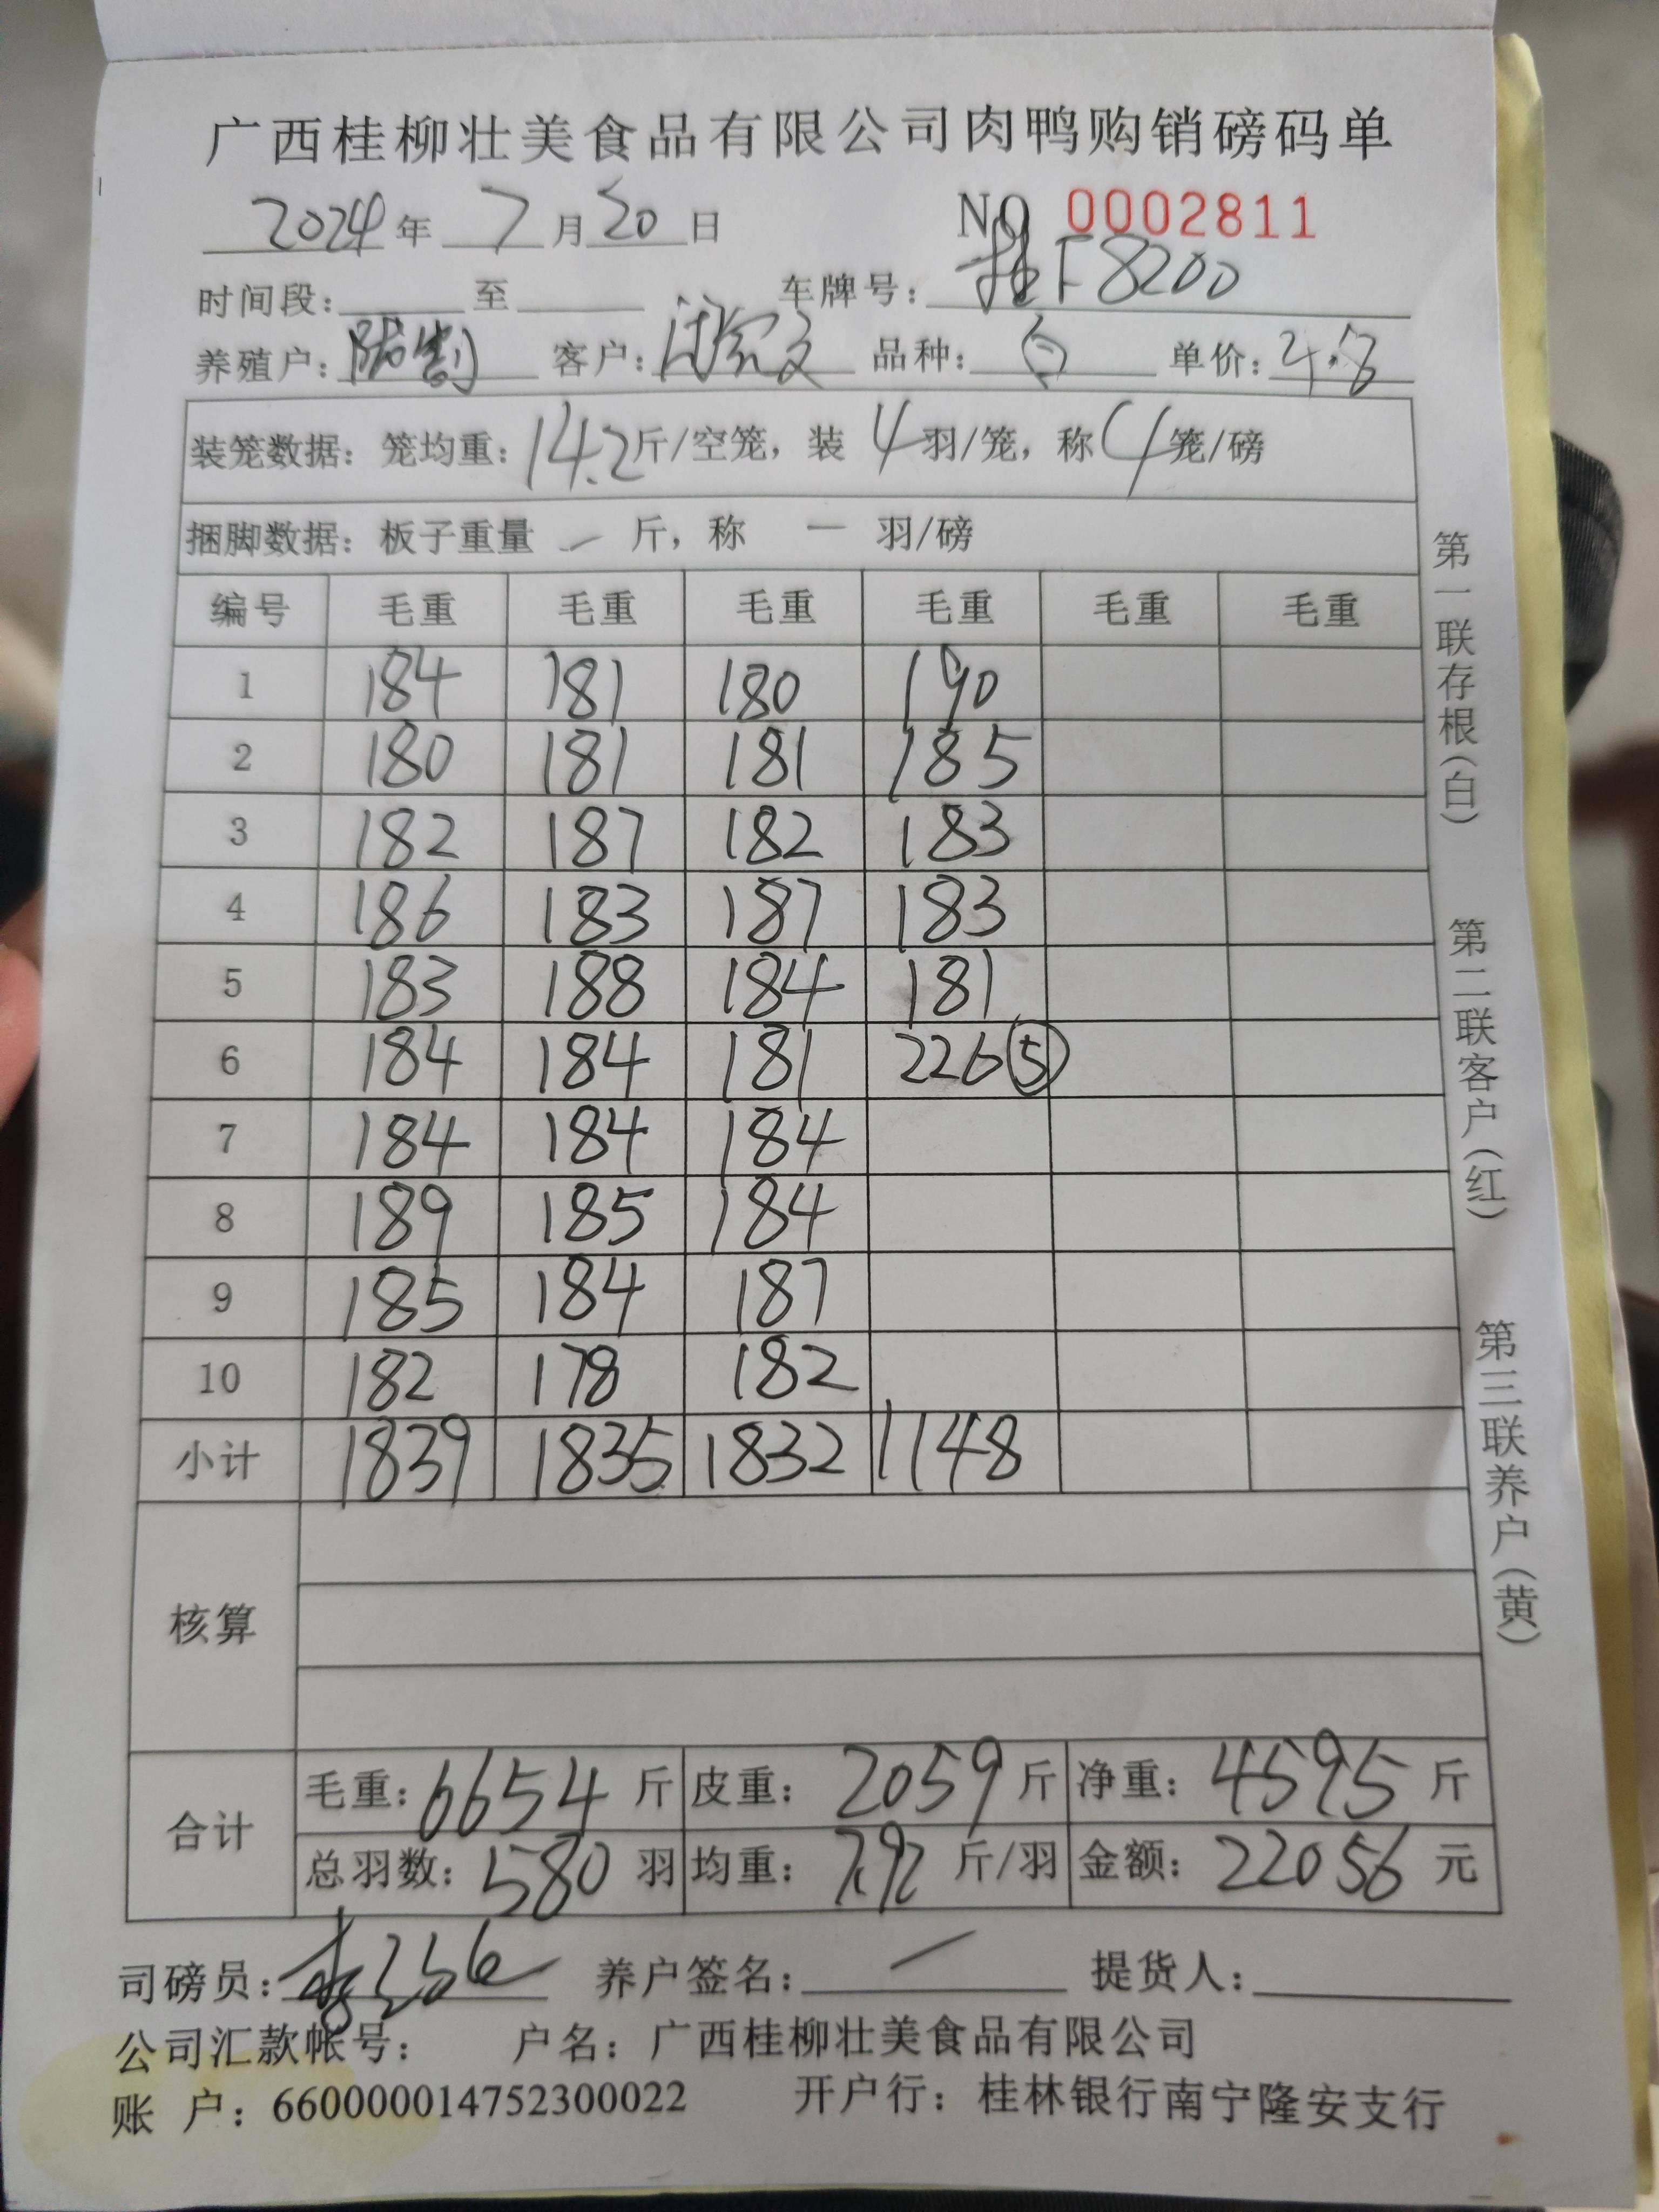 广西桂柳壮美食品有限公司肉鸭购销磅码单
2024年 7月 20日 NO 0002811
时间段: 至 车牌号: 桂F8200
养殖户: 客户: 品种: 白 单价: 4.8
装笼数据: 笼均重: 14.2斤/空笼, 装 4羽/笼, 称4笼/磅
捆脚数据: 板子重量 一 斤, 称 一 羽/磅
编号 毛重 毛重 毛重 毛重 毛重 毛重
1 184 181 180 190
2 180 181 181 185
3 182 187 182 183
4 186 183 187 183
5 183 188 184 181
6 184 184 181 226 ⑤
7 184 184 184
8 189 185 184
9 185 184 187
10 182 178 182
小计 1839 1835 1832 1148
核算
合计 毛重: 6654 斤 皮重: 2059 斤 净重: 4595 斤
总羽数: 580 羽 均重: 7.92 斤/羽 金额: 22056 元
司磅员: 养户签名: 一 提货人:
公司汇款帐号: 户名: 广西桂柳壮美食品有限公司
账 户: 660000014752300022 开户行: 桂林银行南宁隆安支行
第一联存根(白) 第二联客户(红) 第三联养户(黄)